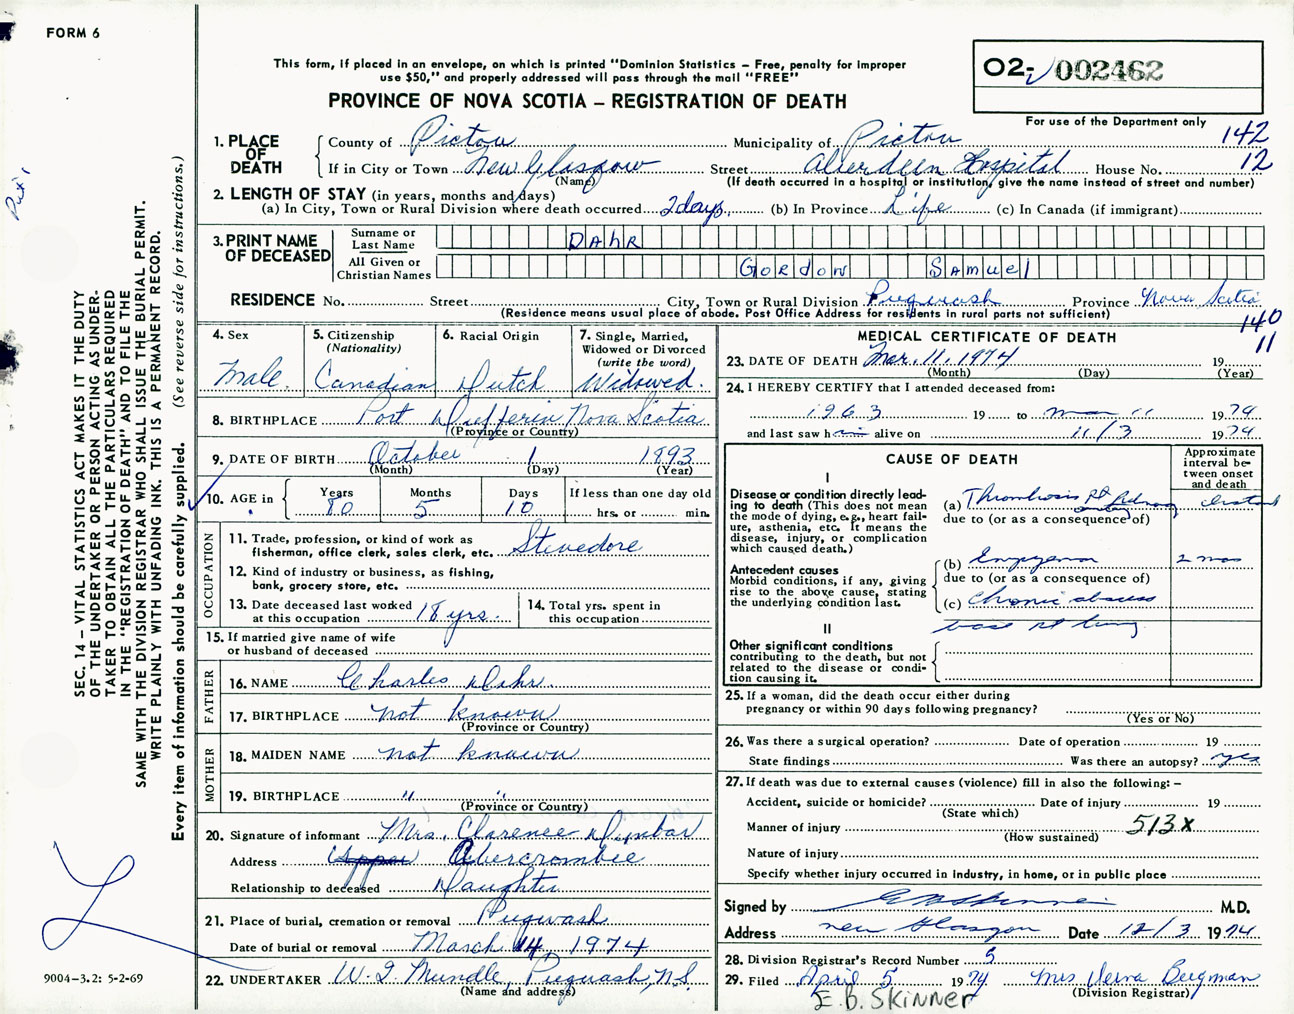 FORM 6
This form, if placed in an envelope, on which is printed "Dominion Statistics – Free, penalty for improper
use $50," and properly addressed will pass through the mail "FREE"
PROVINCE OF NOVA SCOTIA – REGISTRATION OF DEATH
O2- 002462
For use of the Department only
142
12
1. PLACE OF DEATH
County of Pictou Municipality of Pictou
If in City or Town New Glasgow Street Aberdeen Hospital House No.
(Name) (If death occurred in a hospital or institution, give the name instead of street and number)
2. LENGTH OF STAY (in years, months and days)
(a) In City, Town or Rural Division where death occurred 2 days (b) In Province Life (c) In Canada (if immigrant)
3. PRINT NAME OF DECEASED
Surname or Last Name DAhR
All Given or Christian Names Gordon Samuel
RESIDENCE No. Street City, Town or Rural Division Pugwash Province Nova Scotia
(Residence means usual place of abode. Post Office Address for residents in rural parts not sufficient)
140
11
4. Sex
Male.
5. Citizenship
(Nationality)
Canadian
6. Racial Origin
Dutch
7. Single, Married,
Widowed or Divorced
(write the word)
Widowed.
8. BIRTHPLACE Port Dufferin Nova Scotia
(Province or Country)
9. DATE OF BIRTH October 1 1893
(Month) (Day) (Year)
10. AGE in
Years Months Days If less than one day old
80 5 10 hrs. or min.
OCCUPATION
11. Trade, profession, or kind of work as
fisherman, office clerk, sales clerk, etc. Stevedore
12. Kind of industry or business, as fishing,
bank, grocery store, etc.
13. Date deceased last worked
at this occupation 18 yrs.
14. Total yrs. spent in
this occupation
15. If married give name of wife
or husband of deceased
FATHER
16. NAME Charles Dahr.
17. BIRTHPLACE not known
(Province or Country)
MOTHER
18. MAIDEN NAME not known
19. BIRTHPLACE " "
(Province or Country)
20. Signature of informant Mrs. Clarence Dunbar
Address Abercrombie
Relationship to deceased Daughter
21. Place of burial, cremation or removal Pugwash
Date of burial or removal March 14 1974
22. UNDERTAKER W. I. Mundle, Pugwash, N.S.
(Name and address)
MEDICAL CERTIFICATE OF DEATH
23. DATE OF DEATH Mar. 11. 1974 19
(Month) (Day) (Year)
24. I HEREBY CERTIFY that I attended deceased from:
1963 19 to mar 11 1974
and last saw him alive on 11/3 1974
CAUSE OF DEATH
Approximate
interval be-
tween onset
and death
I
Disease or condition directly lead-
ing to death (This does not mean
the mode of dying, e.g., heart fail-
ure, asthenia, etc. It means the
disease, injury, or complication
which caused death.)
(a) Thrombosis Rt
due to (or as a consequence of)
Antecedent causes
Morbid conditions, if any, giving
rise to the above cause, stating
the underlying condition last.
(b) Empyema 2 mos
due to (or as a consequence of)
(c) Chronic abscess
base rt lung
II
Other significant conditions
contributing to the death, but not
related to the disease or condi-
tion causing it.
25. If a woman, did the death occur either during
pregnancy or within 90 days following pregnancy?
(Yes or No)
26. Was there a surgical operation? Date of operation 19
State findings Was there an autopsy? yes
27. If death was due to external causes (violence) fill in also the following: –
Accident, suicide or homicide? Date of injury 19
(State which)
Manner of injury 513x
(How sustained)
Nature of injury
Specify whether injury occurred in industry, in home, or in public place
Signed by M.D.
Address new Glasgow Date 12/3 1974
28. Division Registrar's Record Number 5
29. Filed April 5 1974 Mrs Verna Bergman
(Division Registrar)
E.B. SKINNER
SEC. 14 – VITAL STATISTICS ACT MAKES IT THE DUTY
OF THE UNDERTAKER OR PERSON ACTING AS UNDER-
TAKER TO OBTAIN ALL THE PARTICULARS REQUIRED
IN THE "REGISTRATION OF DEATH" AND TO FILE THE
SAME WITH THE DIVISION REGISTRAR WHO SHALL ISSUE THE BURIAL PERMIT.
WRITE PLAINLY WITH UNFADING INK. THIS IS A PERMANENT RECORD.
Every item of information should be carefully supplied. (See reverse side for instructions.)
9004–3.2: 5-2-69